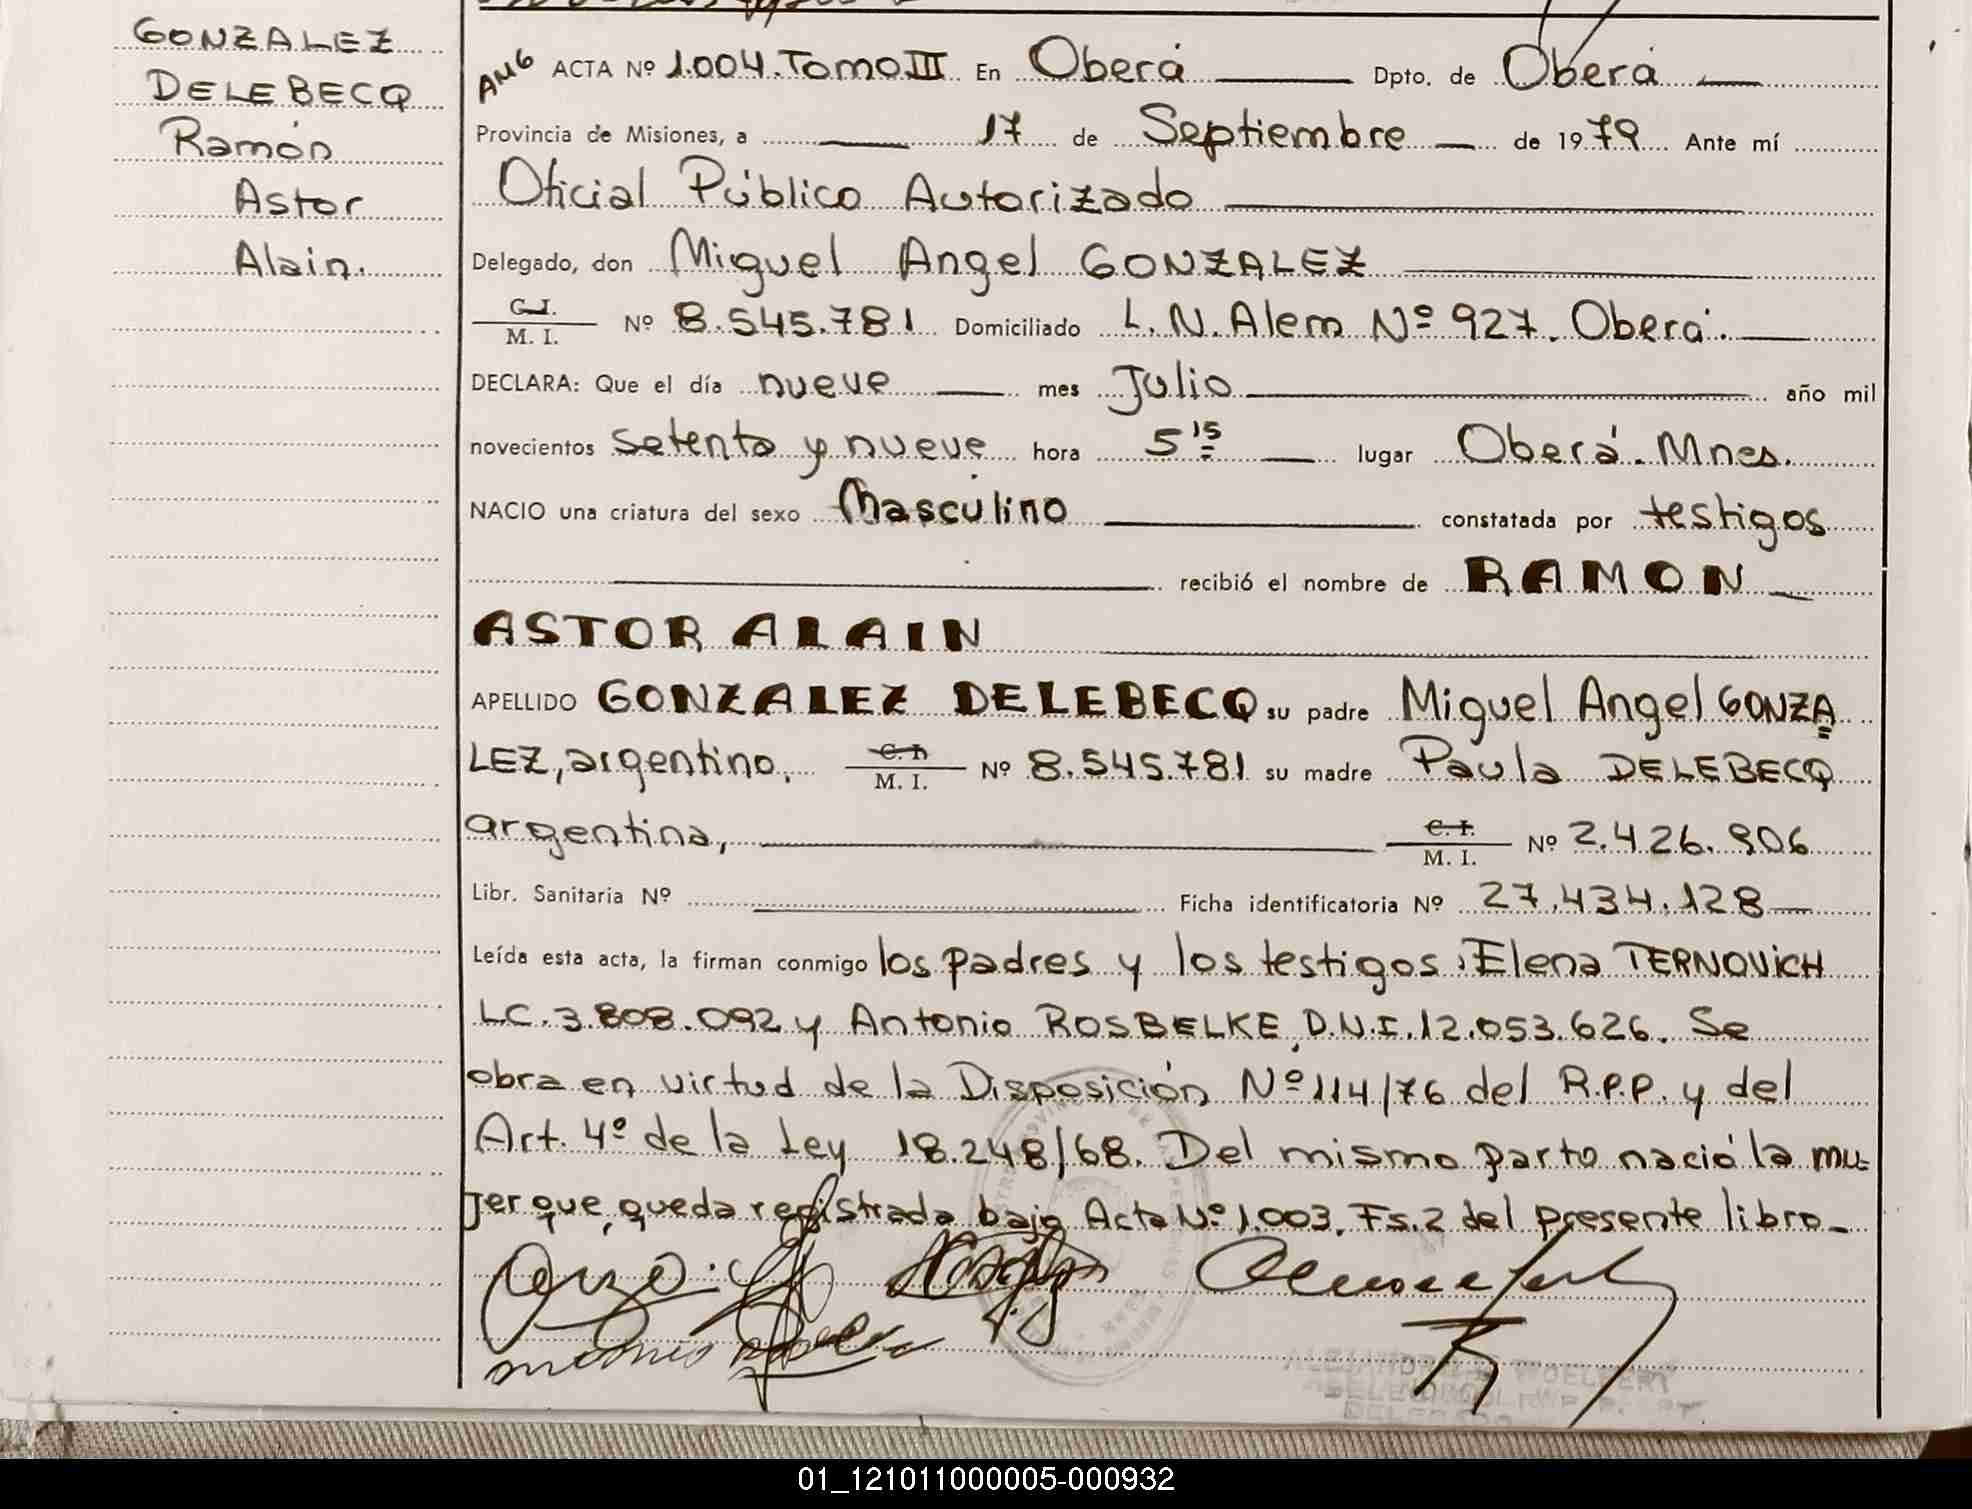 GONZALEZ
DELEBECQ
Ramón
Astor
Alain.
AMG ACTA Nº 1.004. Tomo III En Oberá Dpto. de Oberá
Provincia de Misiones, a 17 de Septiembre de 1979 Ante mí
Oficial Público Autorizado
Delegado, don Miguel Angel GONZALEZ
C. I.
M. I. Nº 8.545.781 Domiciliado L. N. Alem Nº 927. Oberá.
DECLARA: Que el día nueve mes Julio año mil
novecientos setenta y nueve hora 5 15 lugar Oberá. Mnes.
NACIO una criatura del sexo Masculino constatada por testigos
recibió el nombre de RAMON
ASTOR ALAIN
APELLIDO GONZALEZ DELEBECQ su padre Miguel Angel GONZA
LEZ, argentino, C. I. M. I. Nº 8.545.781 su madre Paula DELEBECQ
argentina, C. I. M. I. Nº 2.426.906
Libr. Sanitaria Nº Ficha identificatoria Nº 27.434.128
Leída esta acta, la firman conmigo los padres y los testigos: Elena TERNOVICH
LC. 3.808.092 y Antonio ROSBELKE, D.N.I. 12.053.626. Se
obra en virtud de la Disposición Nº 114/76 del R.P.P. y del
Art. 4º de la Ley 18.248/68. Del mismo parto nació la mu-
jer que, queda registrada bajo Acta Nº 1.003, Fs. 2 del presente libro-
01_121011000005-000932